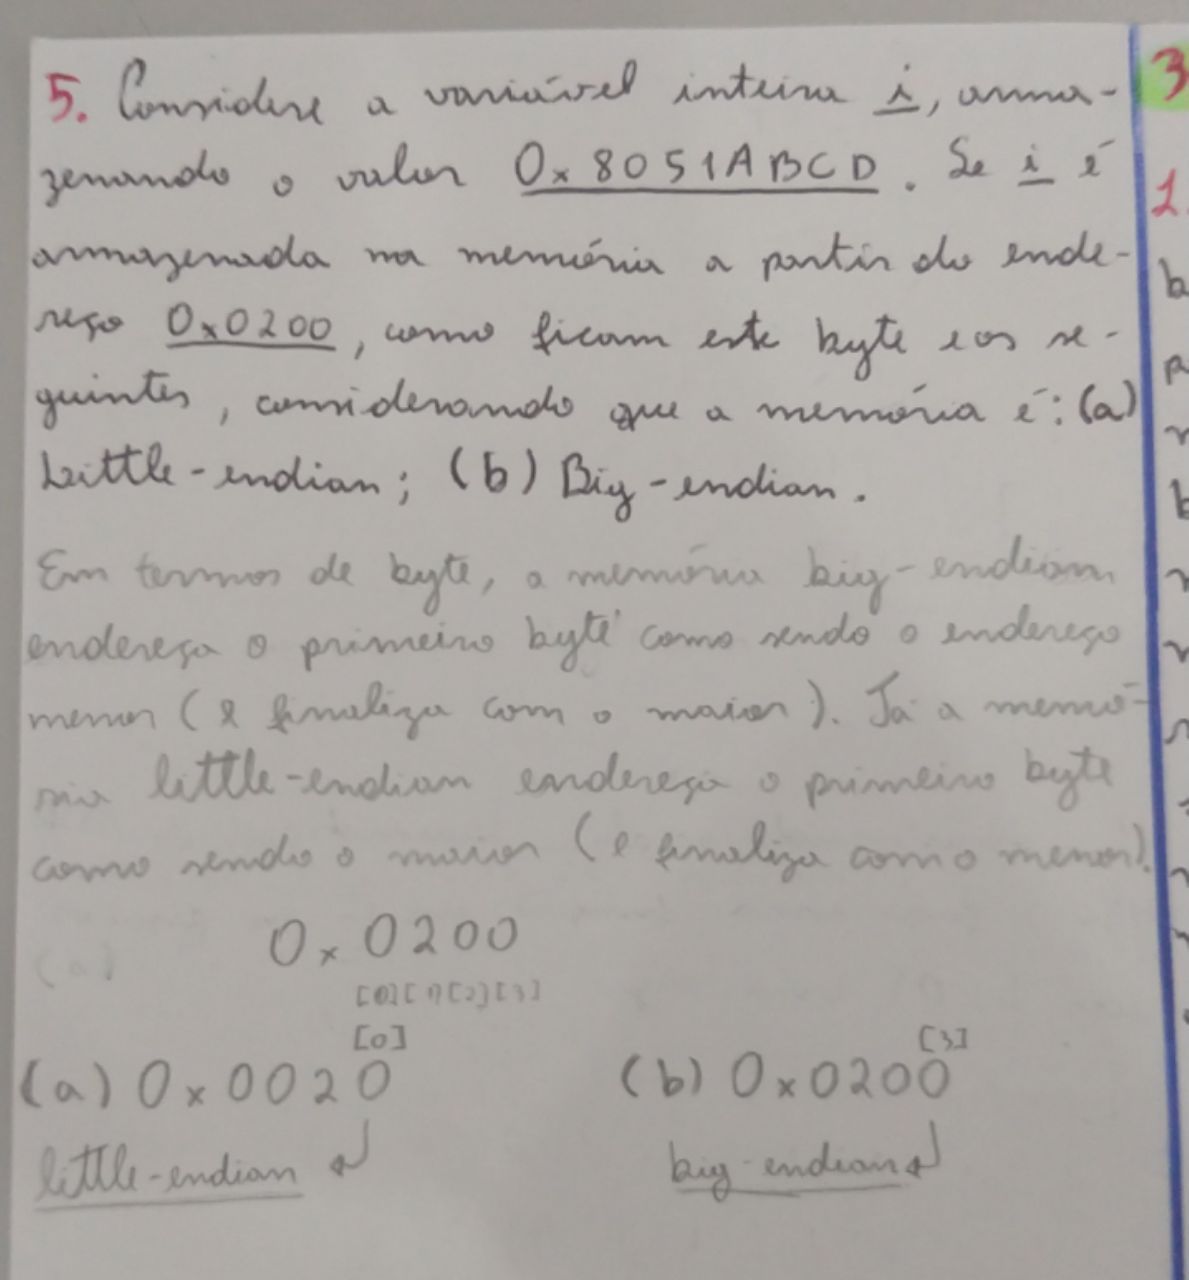 5. Considere a variável inteira i, arma-
zenando o valor 0x8051ABCD. Se i é
armazenada na memória a partir do ende-
reço 0x0200, como ficam este byte e os se-
guintes, considerando que a memória é: (a)
Little-endian; (b) Big-endian.
Em termos de byte, a memória big-endian
endereça o primeiro byte como sendo o endereço
menor (e finaliza com o maior). Já a memó-
ria little-endian endereça o primeiro byte
como sendo o maior (e finaliza com o menor).
(a) 0x0200
[0][1][2][3]
[0] [3]
(a) 0x0020 (b) 0x0200
little-endian big-endian
3
1.
b